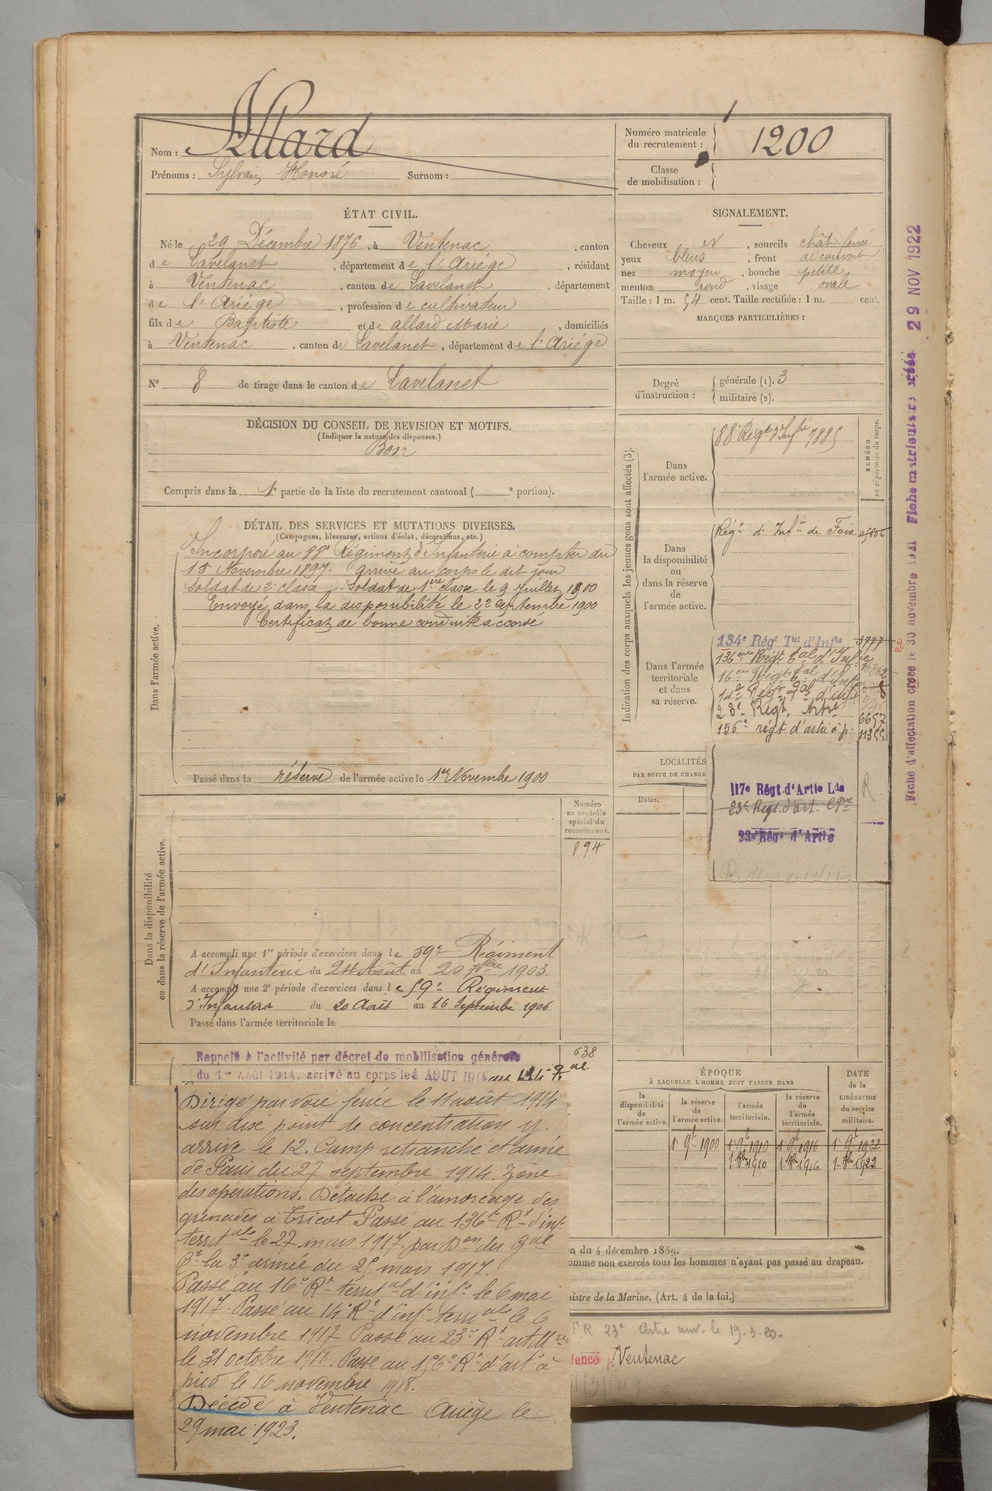 Nom : Allard
Prénoms : Sylvain Honoré Surnom :
Numéro matricule du recrutement : 1200
Classe de mobilisation :
ÉTAT CIVIL.
Né le 29 Décembre 1876, à Ventenac, canton
de Lavelanet, département de l'Ariège, résidant
à Ventenac, canton de Lavelanet, département
de l'Ariège, profession de cultivateur
fils de Baptiste et de allard Marie, domiciliés
à Ventenac, canton de Lavelanet, département de l'Ariège
N° 8 de tirage dans le canton de Lavelanet
SIGNALEMENT.
Cheveux et, sourcils chât. foncé
yeux bleus, front découvert
nez moyen, bouche petite
menton rond, visage ovale
Taille : 1 m. 54 cent. Taille rectifiée : 1 m. cent.
MARQUES PARTICULIÈRES :
Degré d'instruction : générale (1). 3
militaire (2).
DÉCISION DU CONSEIL DE REVISION ET MOTIFS.
(Indiquer la nature des dispenses.)
Bon
Compris dans la 1e partie de la liste du recrutement cantonal ( e portion).
DÉTAIL DES SERVICES ET MUTATIONS DIVERSES.
(Campagnes, blessures, actions d'éclat, décorations, etc.)
Dans l'armée active.
Incorporé au 88e Régiment d'Infanterie à compter du
15 Novembre 1897. Arrivé au corps le dit jour
soldat de 2e classe. Soldat de 1ère classe le 9 Juillet 1900
Envoyé dans la disponibilité le 22 septembre 1900
Certificat de bonne conduite accordé
Passé dans la réserve de l'armée active le 1er Novembre 1900
Dans la disponibilité
ou dans la réserve de l'armée active.
Numéro
au contrôle
spécial du
recrutement.
894
A accompli une 1re période d'exercices dans le 59e Régiment
d'Infanterie du 24 Août au 20 7bre 1903.
A accompli une 2e période d'exercices dans le 59e Régiment
d'Infanterie du 20 Août au 16 Septembre 1906
Passé dans l'armée territoriale le
638
Rappelé à l'activité par décret de mobilisation générale
du 1er Août 1914, arrivé au corps le 4 AOUT 1914
Dirigé par voie ferrée le 11 août 1914
sur dise point de concentration y
arrivé le 12. Camp retranché et armée
de Paris du 27 septembre 1914. Zône
des opérations. Détaché à l'amorçage des
grenades à Tricot Passé au 136e Rt d'inf.
territale le 27 mars 1917 par Don du Gal
Ct la 3e armée du 2e mars 1917.
Passé au 16e Rt territal d'inf. le 6 mai
1917. Passé au 14e Rt d'inf. terrale le 6
novembre 1917 Passé au 23e Rt artie
le 31 octobre 1918. Passé au 156e Rt d'arte à
pied le 16 novembre 1918.
Décédé à Ventenac Ariège le
29 mai 1923.
Indication des corps auxquels les jeunes gens sont affectés (3).
NUMÉRO
au répertoire du corps.
Dans l'armée active.
88 Régt d'Infie 7885
Dans la disponibilité ou dans la réserve de l'armée active.
Régt d'Infie de Foix
Dans l'armée territoriale et dans sa réserve.
134e Régt Tal d'Infie 3777
136eme Régt Tal d'Infie
16eme Régt Tal d'Infie
14e Régt Tal d'infie
23e Régt. Artie 6657
156e régt d'artie à p. 11355
117e Régt d'Artie Lde
23e Régt d'art. Cgne
23e Régt d'Artie
LOCALITÉS
PAR SUITE DE CHANGE
Dates.
ÉPOQUE
À LAQUELLE L'HOMME DOIT PASSER DANS
la disponibilité de l'armée active.
la réserve de l'armée active.
l'armée territoriale.
la réserve de l'armée territoriale.
DATE de la LIBÉRATION du service militaire.
1 9e 1900 1 9e 1910 1 9e 1916 1 9e 1922
1 8bre 1910 1 8bre 1916 1 8bre 1922
n du 4 décembre 1889.
omme non exercés tous les hommes n'ayant pas passé au drapeau.
nistre de la Marine. (Art. 4 de la loi.)
R 23e Artie le 19.3.20.
dence Ventenac
Fiche d'affectation créée le 30 novembre 1921 Fiche matriculaire créée 29 NOV 1922